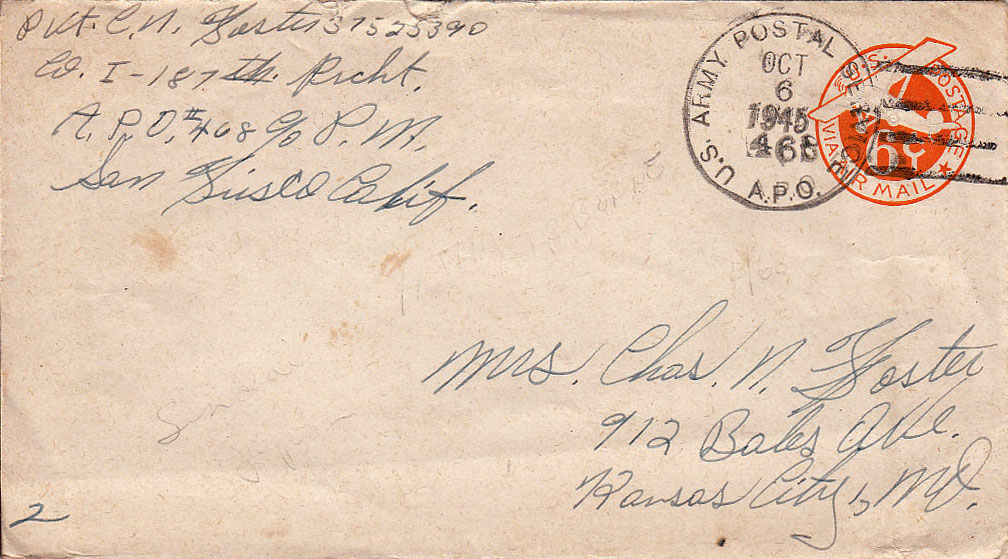 Pvt. C. N. Foster 37525390
Co. I-187th Prcht.
A.P.O. #468 c/o P.M.
San Frisco Calif.
U.S. ARMY POSTAL SERVICE
OCT
6
1945
468
A.P.O.
U.S. POSTAGE
6¢
VIA AIR MAIL
Mrs. Chas. N. Foster
912 Bales Ave.
Kansas City, Mo.
2